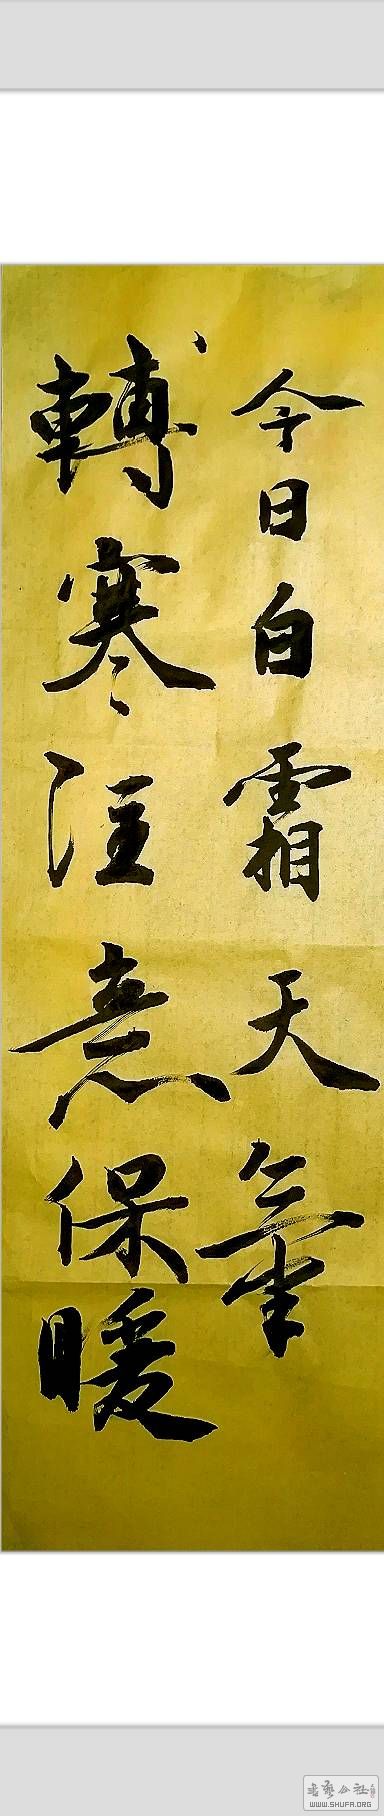 今日白霜天氣
轉寒注意保暖
书艺公社
WWW.SHUFA.ORG